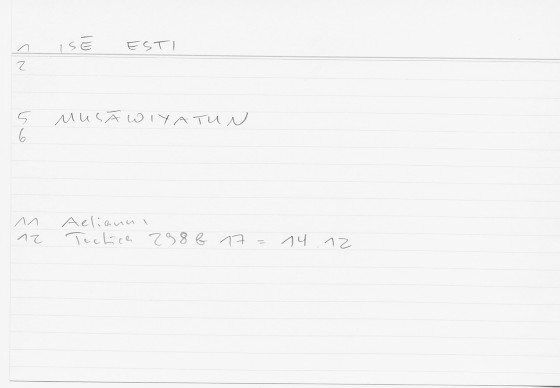 1 ISĒ ESTI
2
5 MUSĀWIYATUN
6
11 Aelianus
12 Tactica 298B 17 = 14 12